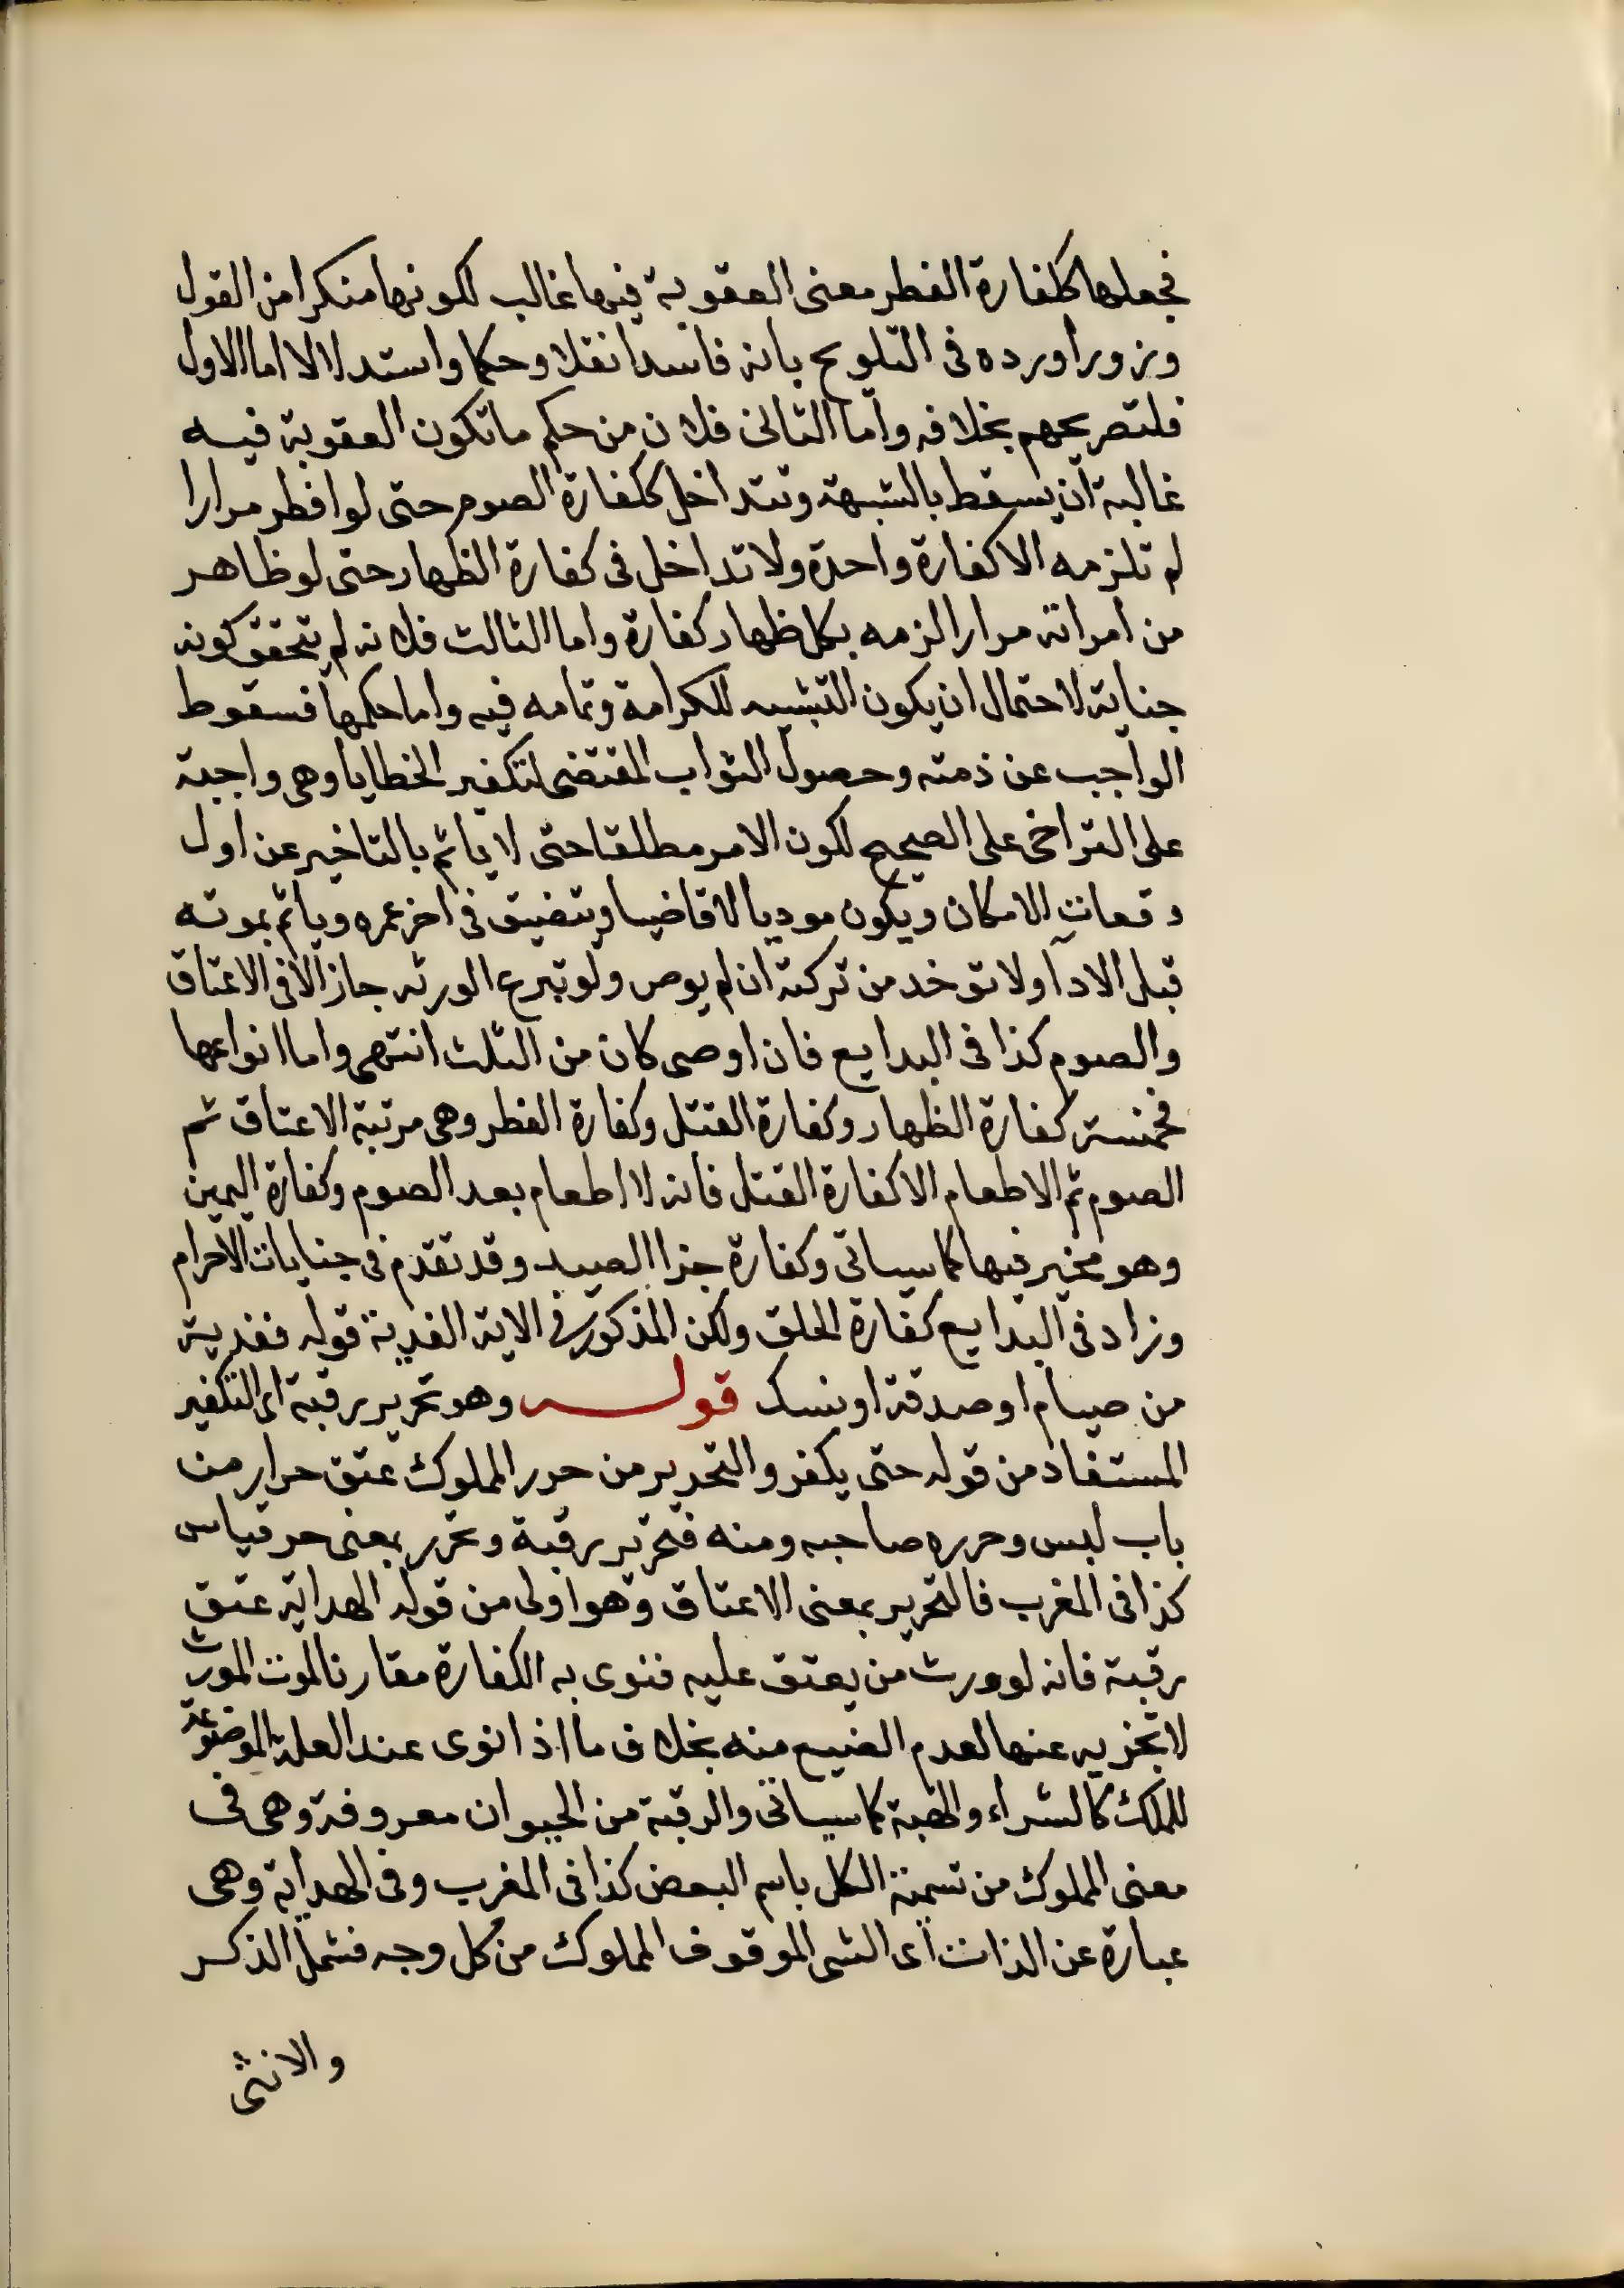 فجعلها كفارة الفطر معنى العقوبة فيها غالب لكونها منكرا من القول
وزورا ورده فى التلويح بانه فاسد نقلا وحكما واستدلالا اما الاول
فلتصريحهم بخلافه واما الثانى فلان من حكم ما تكون العقوبة فيه
غالبة ان يسقط بالشبهة وتتداخل ككفارة الصوم حتى لو افطر مرارا
لم تلزمه الا كفارة واحدة ولا تداخل فى كفارة الظهار حتى لو ظاهر
من امراته مرارا لزمه بكل ظهار كفارة واما الثالث فلانه لم يتحقق كونه
جناية لاحتمال ان يكون التشبيه للكرامة وتمامه فيه واما حكمها فسقوط
الواجب عن ذمته وحصول الثواب المقتضى لتكفير الخطايا وهى واجبة
على التراخى على الصحيح لكون الامر مطلقا حتى لا ياثم بالتاخير عن اول
وقعات الامكان ويكون موديا لا قاضيا ويتضيق فى اخر عمره وياثم بموته
قبل الادآ ولا توخد من تركته ان لم يوص ولو تبرع الورثه جاز الا فى الاعتاق
والصوم كذا فى البدايع فان اوصى كان من الثلث انتهى واما انواعها
فخمسة كفارة الظهار وكفارة القتل وكفارة الفطر وهى مرتبة الاعتاق ثم
الصوم ثم الاطعام الا كفارة القتل فانه لا اطعام بعد الصوم وكفارة اليمين
وهو مخير فيها كما سياتى وكفارة جزا الصيد وقد تقدم فى جنايات الاحرام
وزاد فى البدايع كفارة الحلق ولكن المذكور فى الاية الفدية قوله ففدية
من صيام او صدقة او نسك قوله وهو تحرير رقبة اى التكفير
المستفاد من قوله حتى يكفر والتحرير من حرر المملوك عتق حرار من
باب لبس وحرره صاحبه ومنه فتحرير رقبة وتحرر بمعنى حر قياس
كذا فى المغرب فالتحرير بمعنى الاعتاق وهو اولى من قوله الهداية عتق
رقبة فانه لو ورث من يعتق عليه فنوى به الكفارة مقارنا لموت المورث
لا تجزيه عنها لعدم الصنيع منه بخلاف ما اذا نوى عند العلة الموضوعة
للملك كالشراء والهبة كما سياتى والرقبة من الحيوان معروفة وهى فى
معنى المملوك من تسمية الكل باسم البعض كذا فى المغرب وفى الهداية وهى
عبارة عن الذات اى الشى الموقوف المملوك من كل وجه فشمل الذكر
والانثى